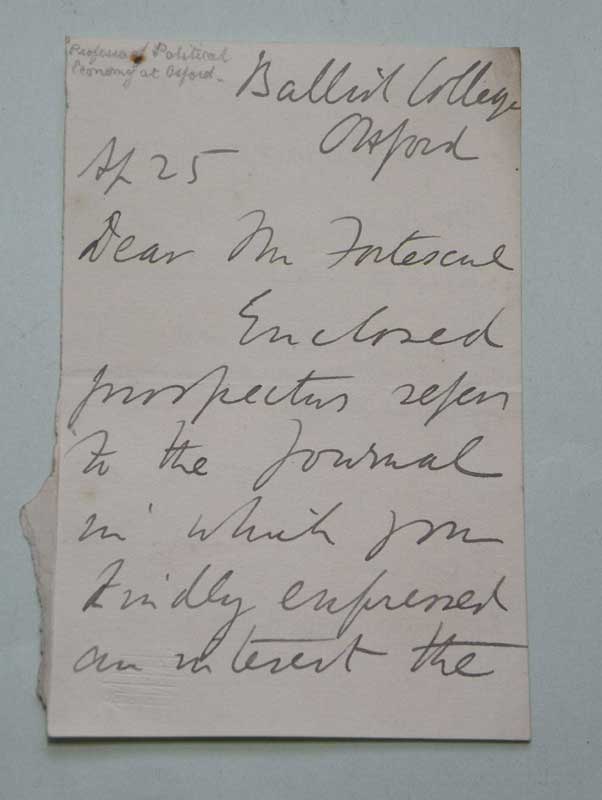 Professor of Political
Economy at Oxford.
Balliol College
Oxford
Ap 25
Dear Mr Fortescue
Enclosed
prospectus refers
to the Journal
in which you
kindly expressed
an interest the